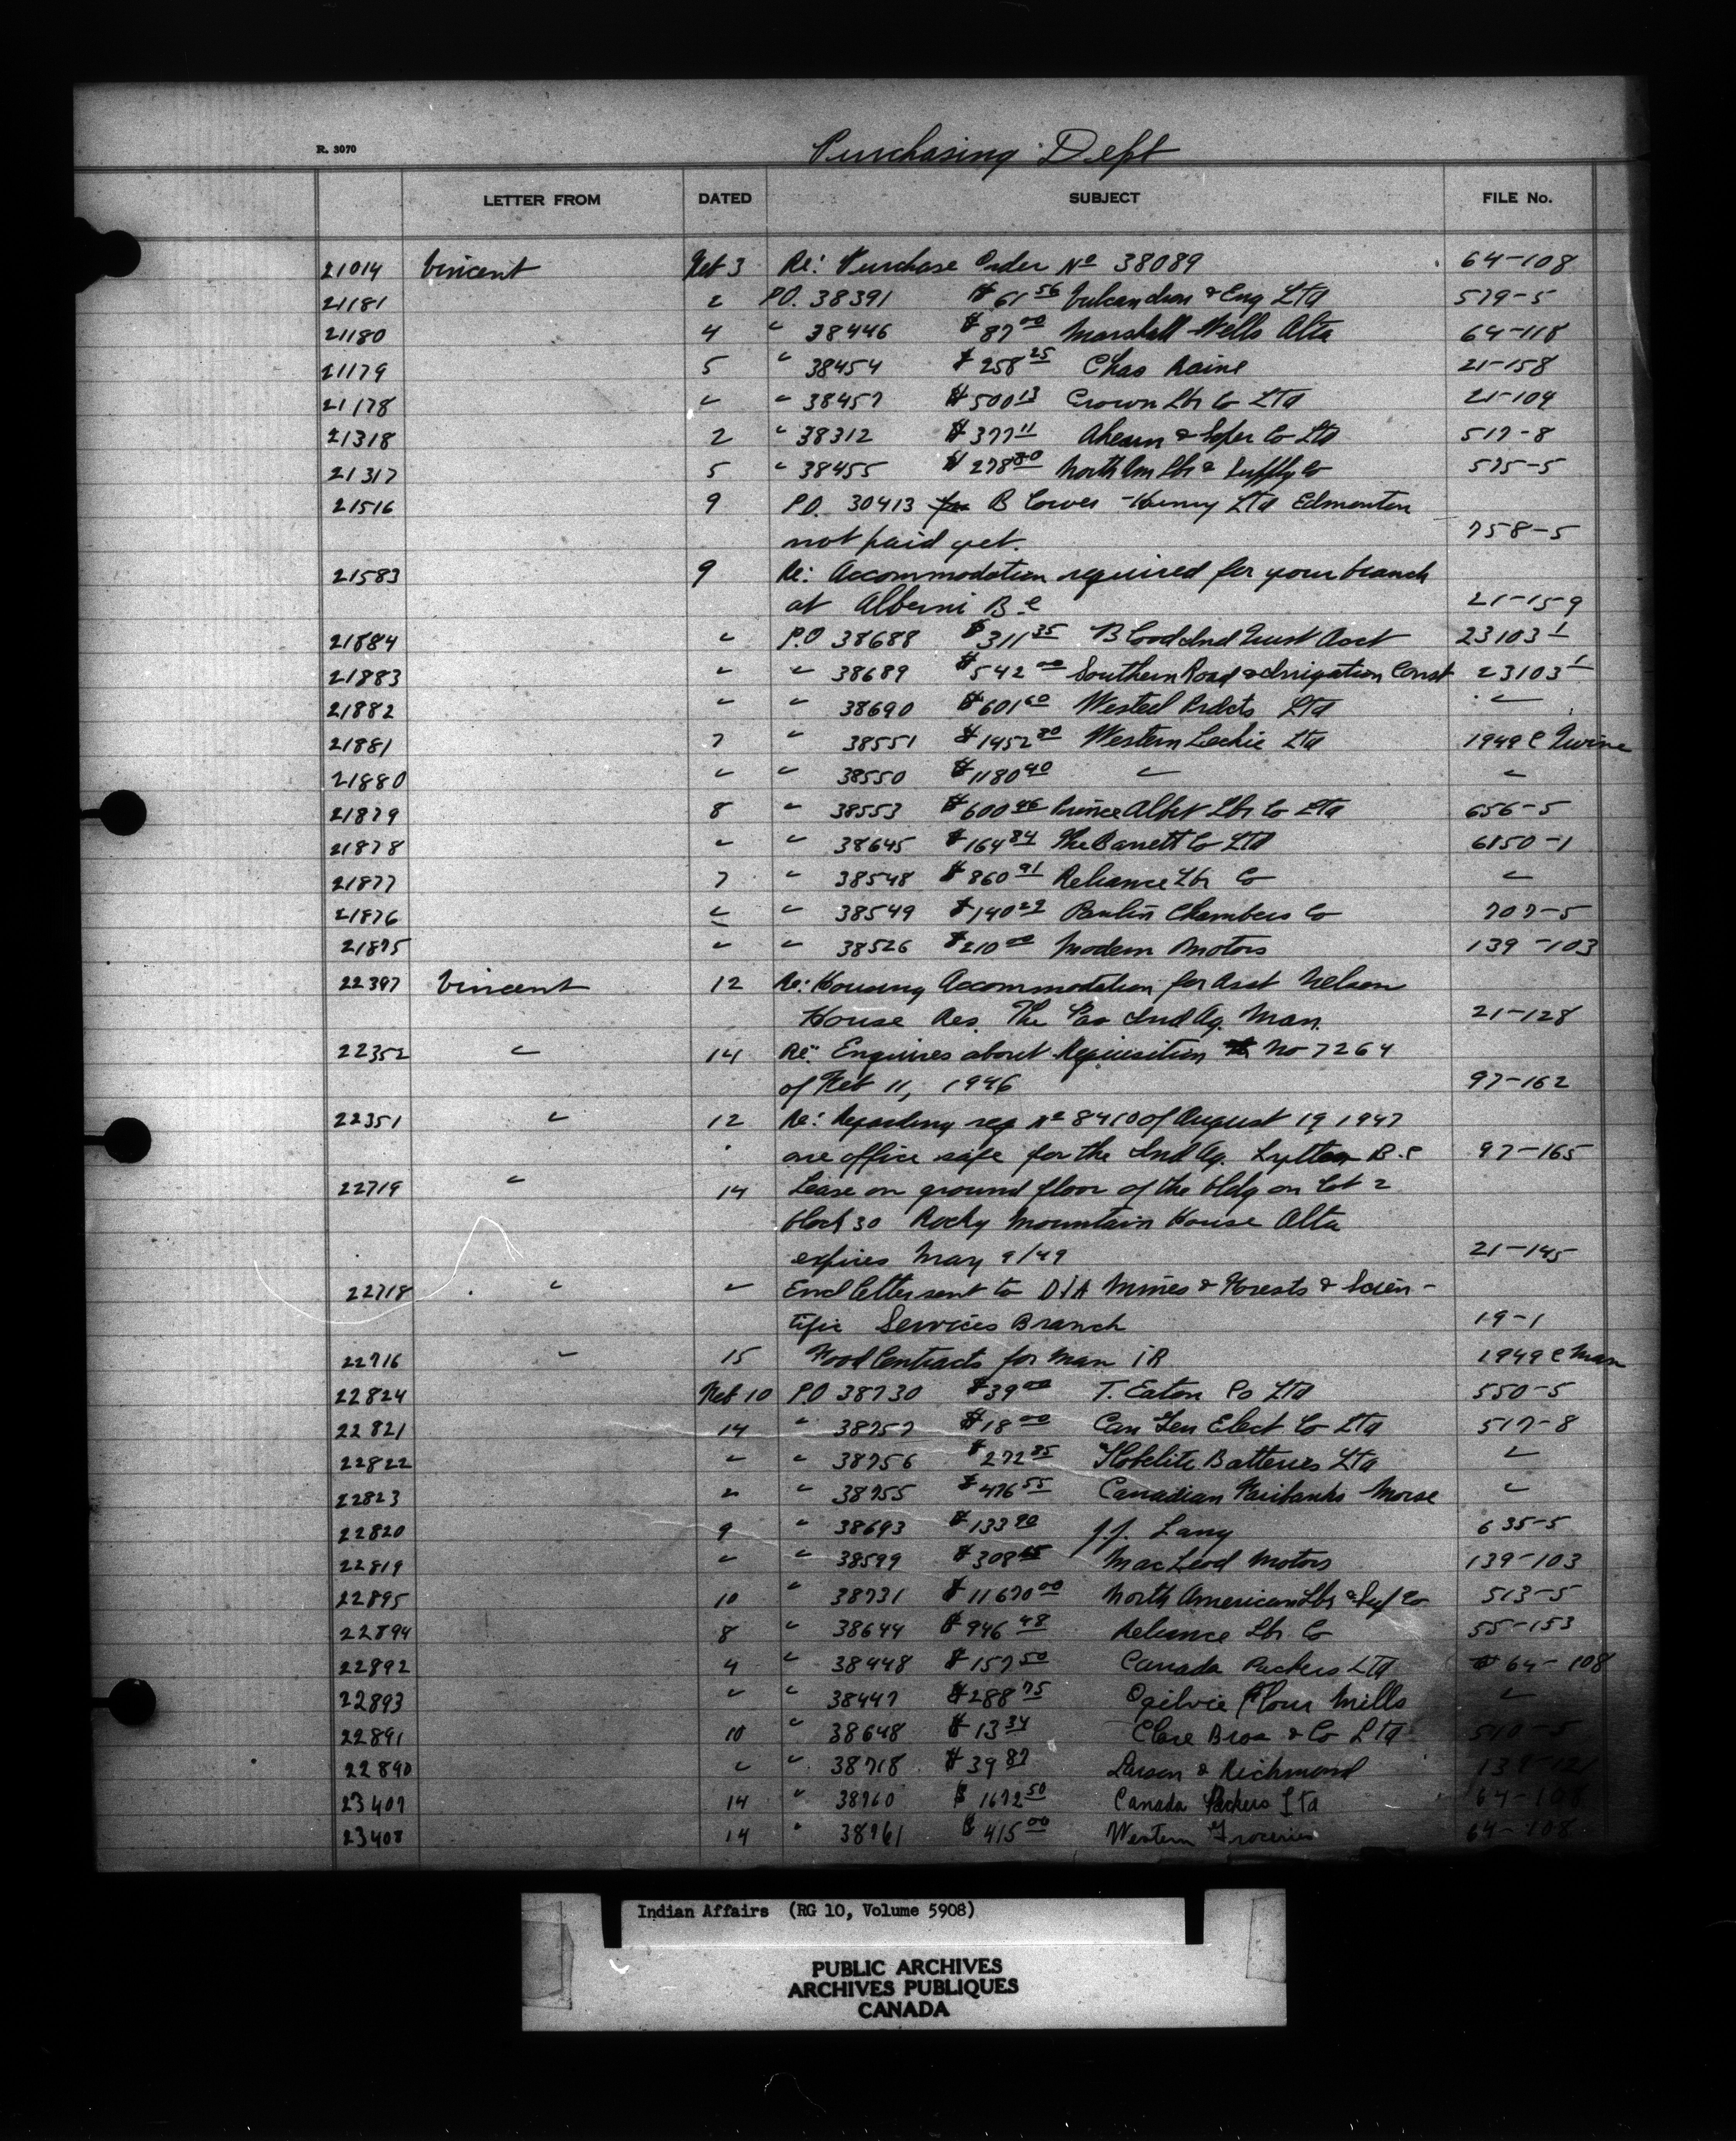 R. 3070
Purchasing Dept
LETTER FROM DATED SUBJECT FILE No.
21014 Vincent Feb 3 Re: Purchase Order No 38089 64-108
21181 2 P.O. 38391 $61 56 Vulcan Iron & Eng Ltd 579-5
21180 4 " 38446 $87 00 Marshall Wells Alta 64-118
21179 5 38454 $258 25 Chas Raine 21-158
21178 " " 38457 $500 13 Crown Lbr Co Ltd 21-104
21318 2 " 38312 $377 11 Ahearn & Soper Co Ltd 517-8
21317 5 " 38455 $278 80 North Am Lbr & Supply Co 575-5
21516 9 P.O. 30413 for B Lowes Henry Ltd Edmonton
not paid yet. 758-5
21583 9 Re: Accommodation required for your branch
at Alberni B C 21-159
21884 " P.O 38688 $311 35 Blood Ind Trust Acct 23103 1
21883 " " 38689 $542 00 Southern Road & Irrigation Const 23103 1
21882 " " 38690 $601 60 Westeel Prdcts Ltd "
21881 7 " 38551 $1452 80 Western Leckie Ltd 1949 C
21880 " " 38550 $1180 40 " "
21879 8 " 38553 $600 46 Prince Albert Lbr Co Ltd 656-5
21878 " " 38645 $164 84 The Barrett Co Ltd 6150-1
21877 7 " 38548 $860 91 Reliance Lbr Co "
21876 " " 38549 $140 29 Paulin Chambers Co 707-5
21875 " " 38526 $210 00 Modern Motors 139-103
22397 Vincent 12 Re: Housing Accommodation for Asst Nelson
House Res. The Pas Ind Ag. Man. 21-128
22352 " 14 Re: Enquires about Requisition No 7264
of Feb 11, 1946 97-162
22351 " 12 Re: Regarding req No 8410 of August 19 1947
one office safe for the Ind Ag. Lytton B.C 97-165
22719 " 14 Lease on ground floor of the bldg on Lot 2
block 30 Rocky Mountain House Alta
expires May 9/49 21-145
22718 " " Encl letter sent to D/A Mines & Forests & Scien-
tific Services Branch 19-1
22716 " 15 Food Contracts for Man IR 1949 C Man
22824 Feb 10 P.O 38730 $39 00 T. Eaton Co Ltd 550-5
22821 14 " 38757 $18 00 Can Gen Elect Co Ltd 517-8
22822 " " 38756 $272 85 Hobelite Batteries Ltd "
22823 " " 38755 $476 55 Canadian Fairbanks Morse "
22820 9 " 38693 $133 90 J.J. Lang 635-5
22819 " " 38599 $308 65 MacLeod Motors 139-103
22895 10 " 38731 $11670 00 North American Lbr & Sup Co 513-5
22894 8 " 38644 $946 48 Reliance Lbr. Co 55-153
22892 4 " 38448 $157 50 Canada Packers Ltd 64-108
22893 " " 38447 $288 75 Ogilvie Flour Mills "
22891 10 " 38648 $13 34 Clare Bros & Co Ltd 510-5
22890 " " 38718 $39 87 Larson & Richmond 139-121
23407 14 " 38760 $1672 50 Canada Packers Ltd 64-108
23408 14 " 38761 $415 00 Western Groceries 64-108
Indian Affairs (RG 10, Volume 5908)
PUBLIC ARCHIVES
ARCHIVES PUBLIQUES
CANADA